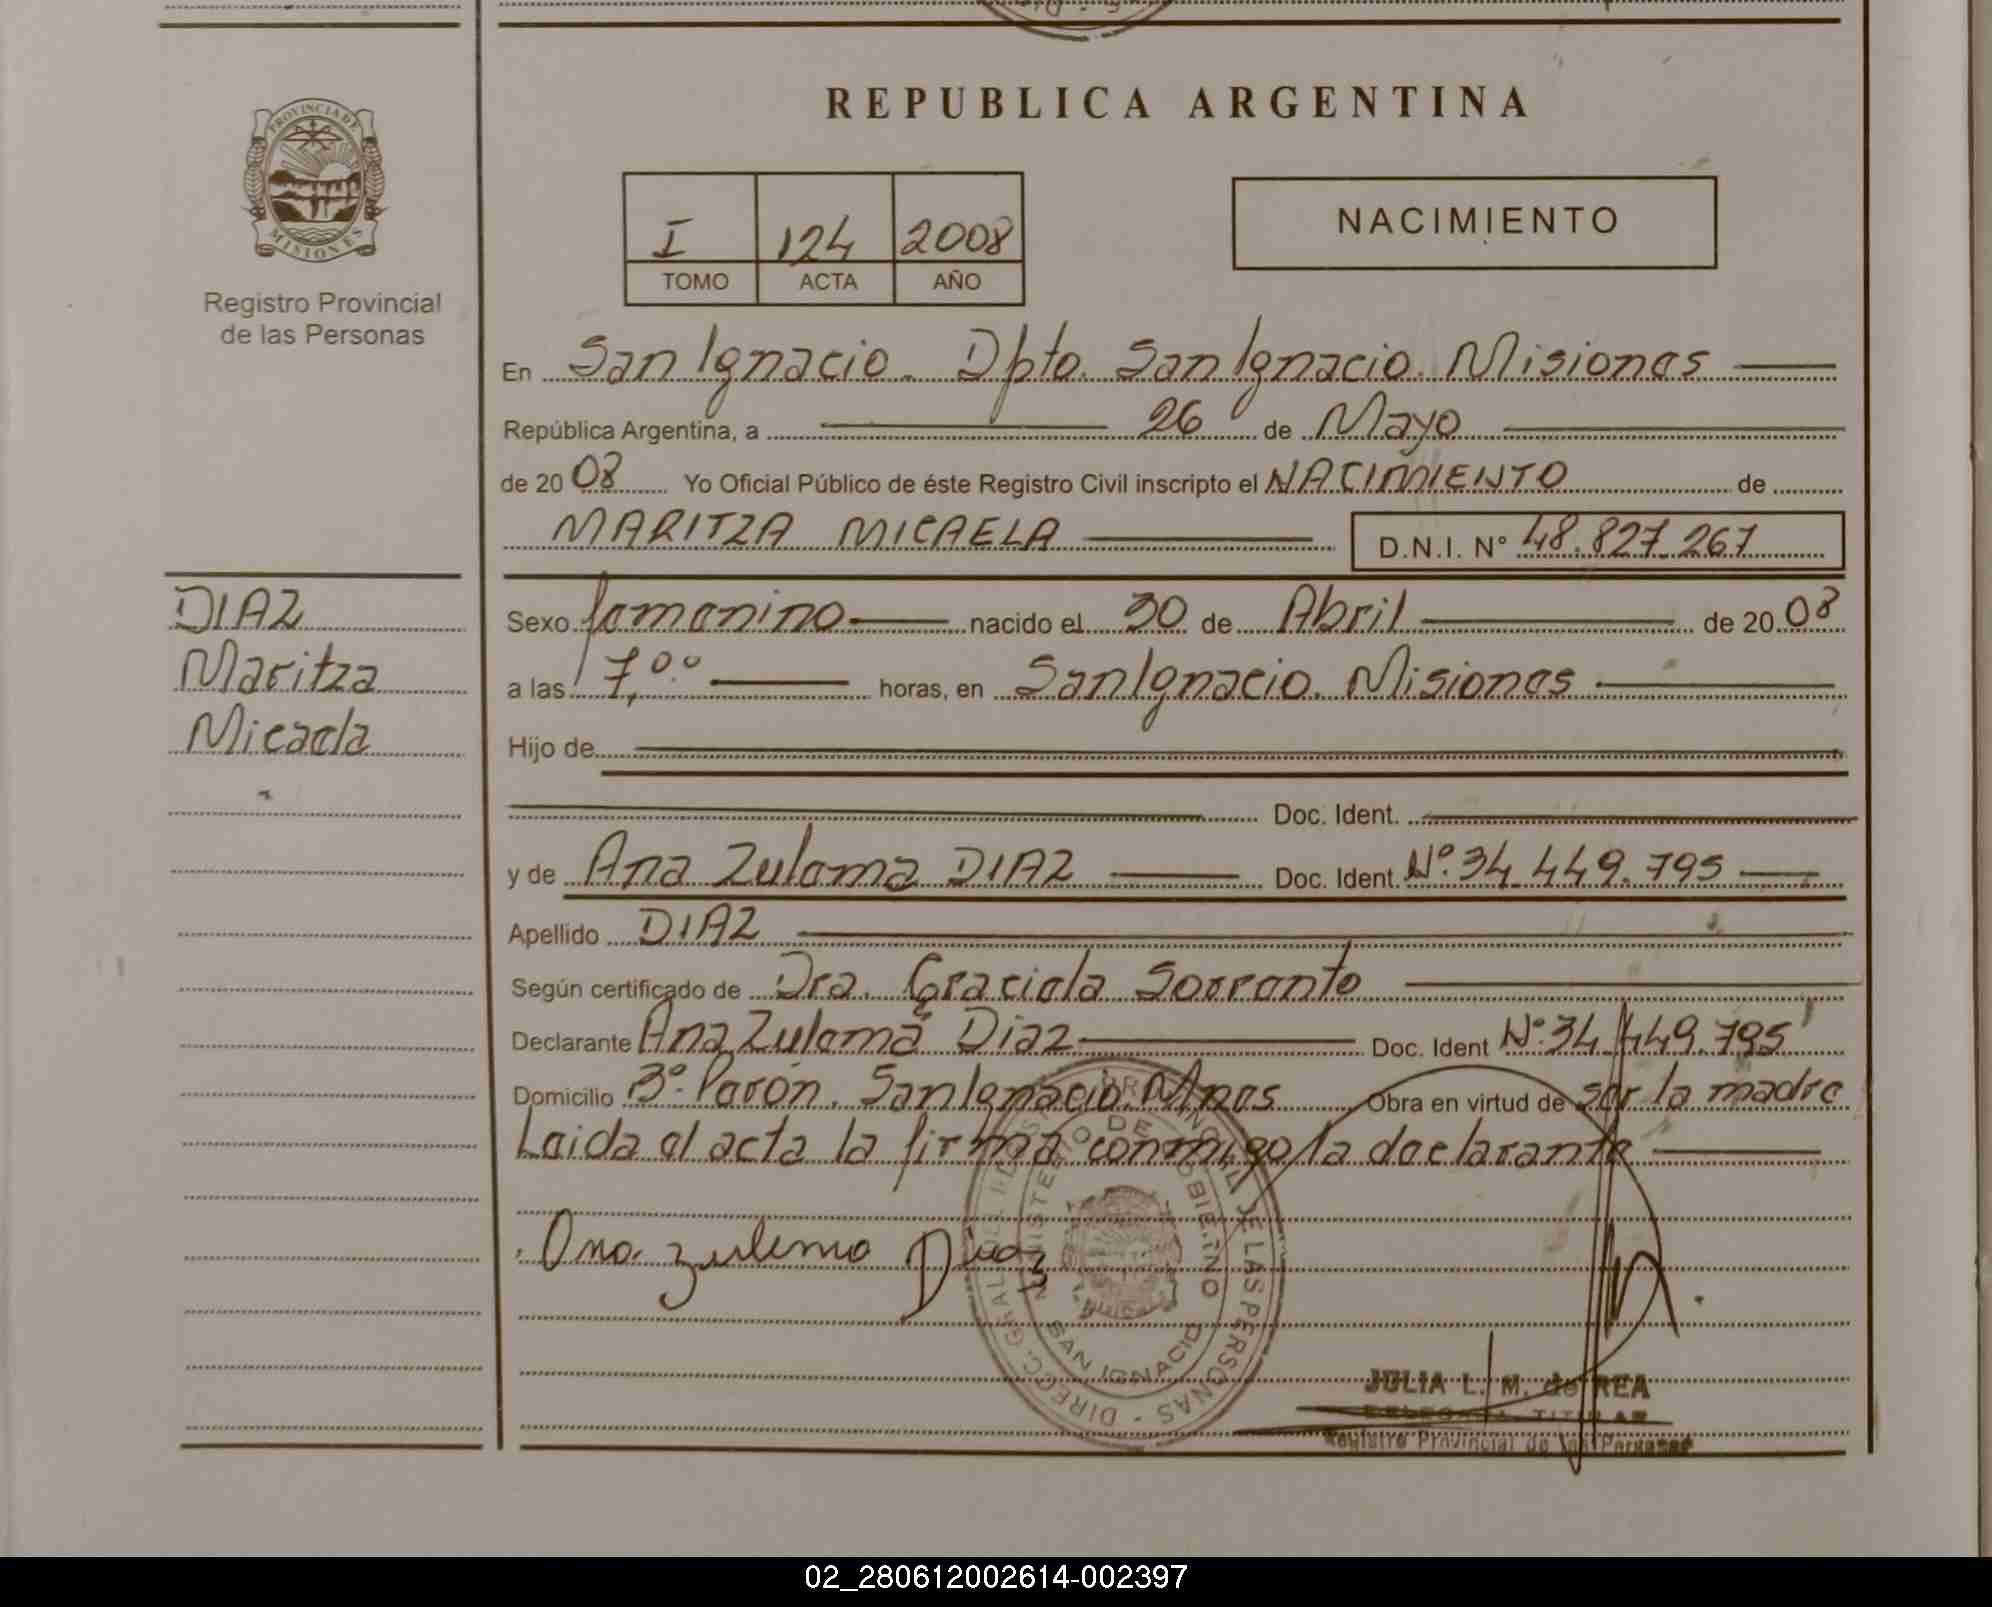 PROVINCIA DE
MISIONES
Registro Provincial
de las Personas
REPUBLICA ARGENTINA
I 124 2008
TOMO ACTA AÑO
NACIMIENTO
En San Ignacio. Dpto. San Ignacio. Misiones
República Argentina, a 26 de Mayo
de 20 08 Yo Oficial Público de éste Registro Civil inscripto el NACIMIENTO de
MARITZA MICAELA D.N.I. N° 48.827.267
DIAZ
Maritza
Micaela
Sexo femenino nacido el 30 de Abril de 20 08
a las 7,00 horas, en San Ignacio. Misiones
Hijo de
Doc. Ident.
y de Ana Zulema DIAZ Doc. Ident. N°. 34.449.795
Apellido DIAZ
Según certificado de Dra. Graciela Sorrento
Declarante Ana Zulema Diaz Doc. Ident N°. 34.449.795
Domicilio B°. Perón. San Ignacio. Mnes Obra en virtud de ser la madre
Leida el acta la firma conmigo la declarante
Ana Zulema Diaz
MINISTERIO DE GOBIERNO
SAN IGNACIO
DE LAS PERSONAS - DIRECC. GRAL.
JULIA L. M. de REA
DELEGADA TITULAR
Registro Provincial de las Personas
02_280612002614-002397